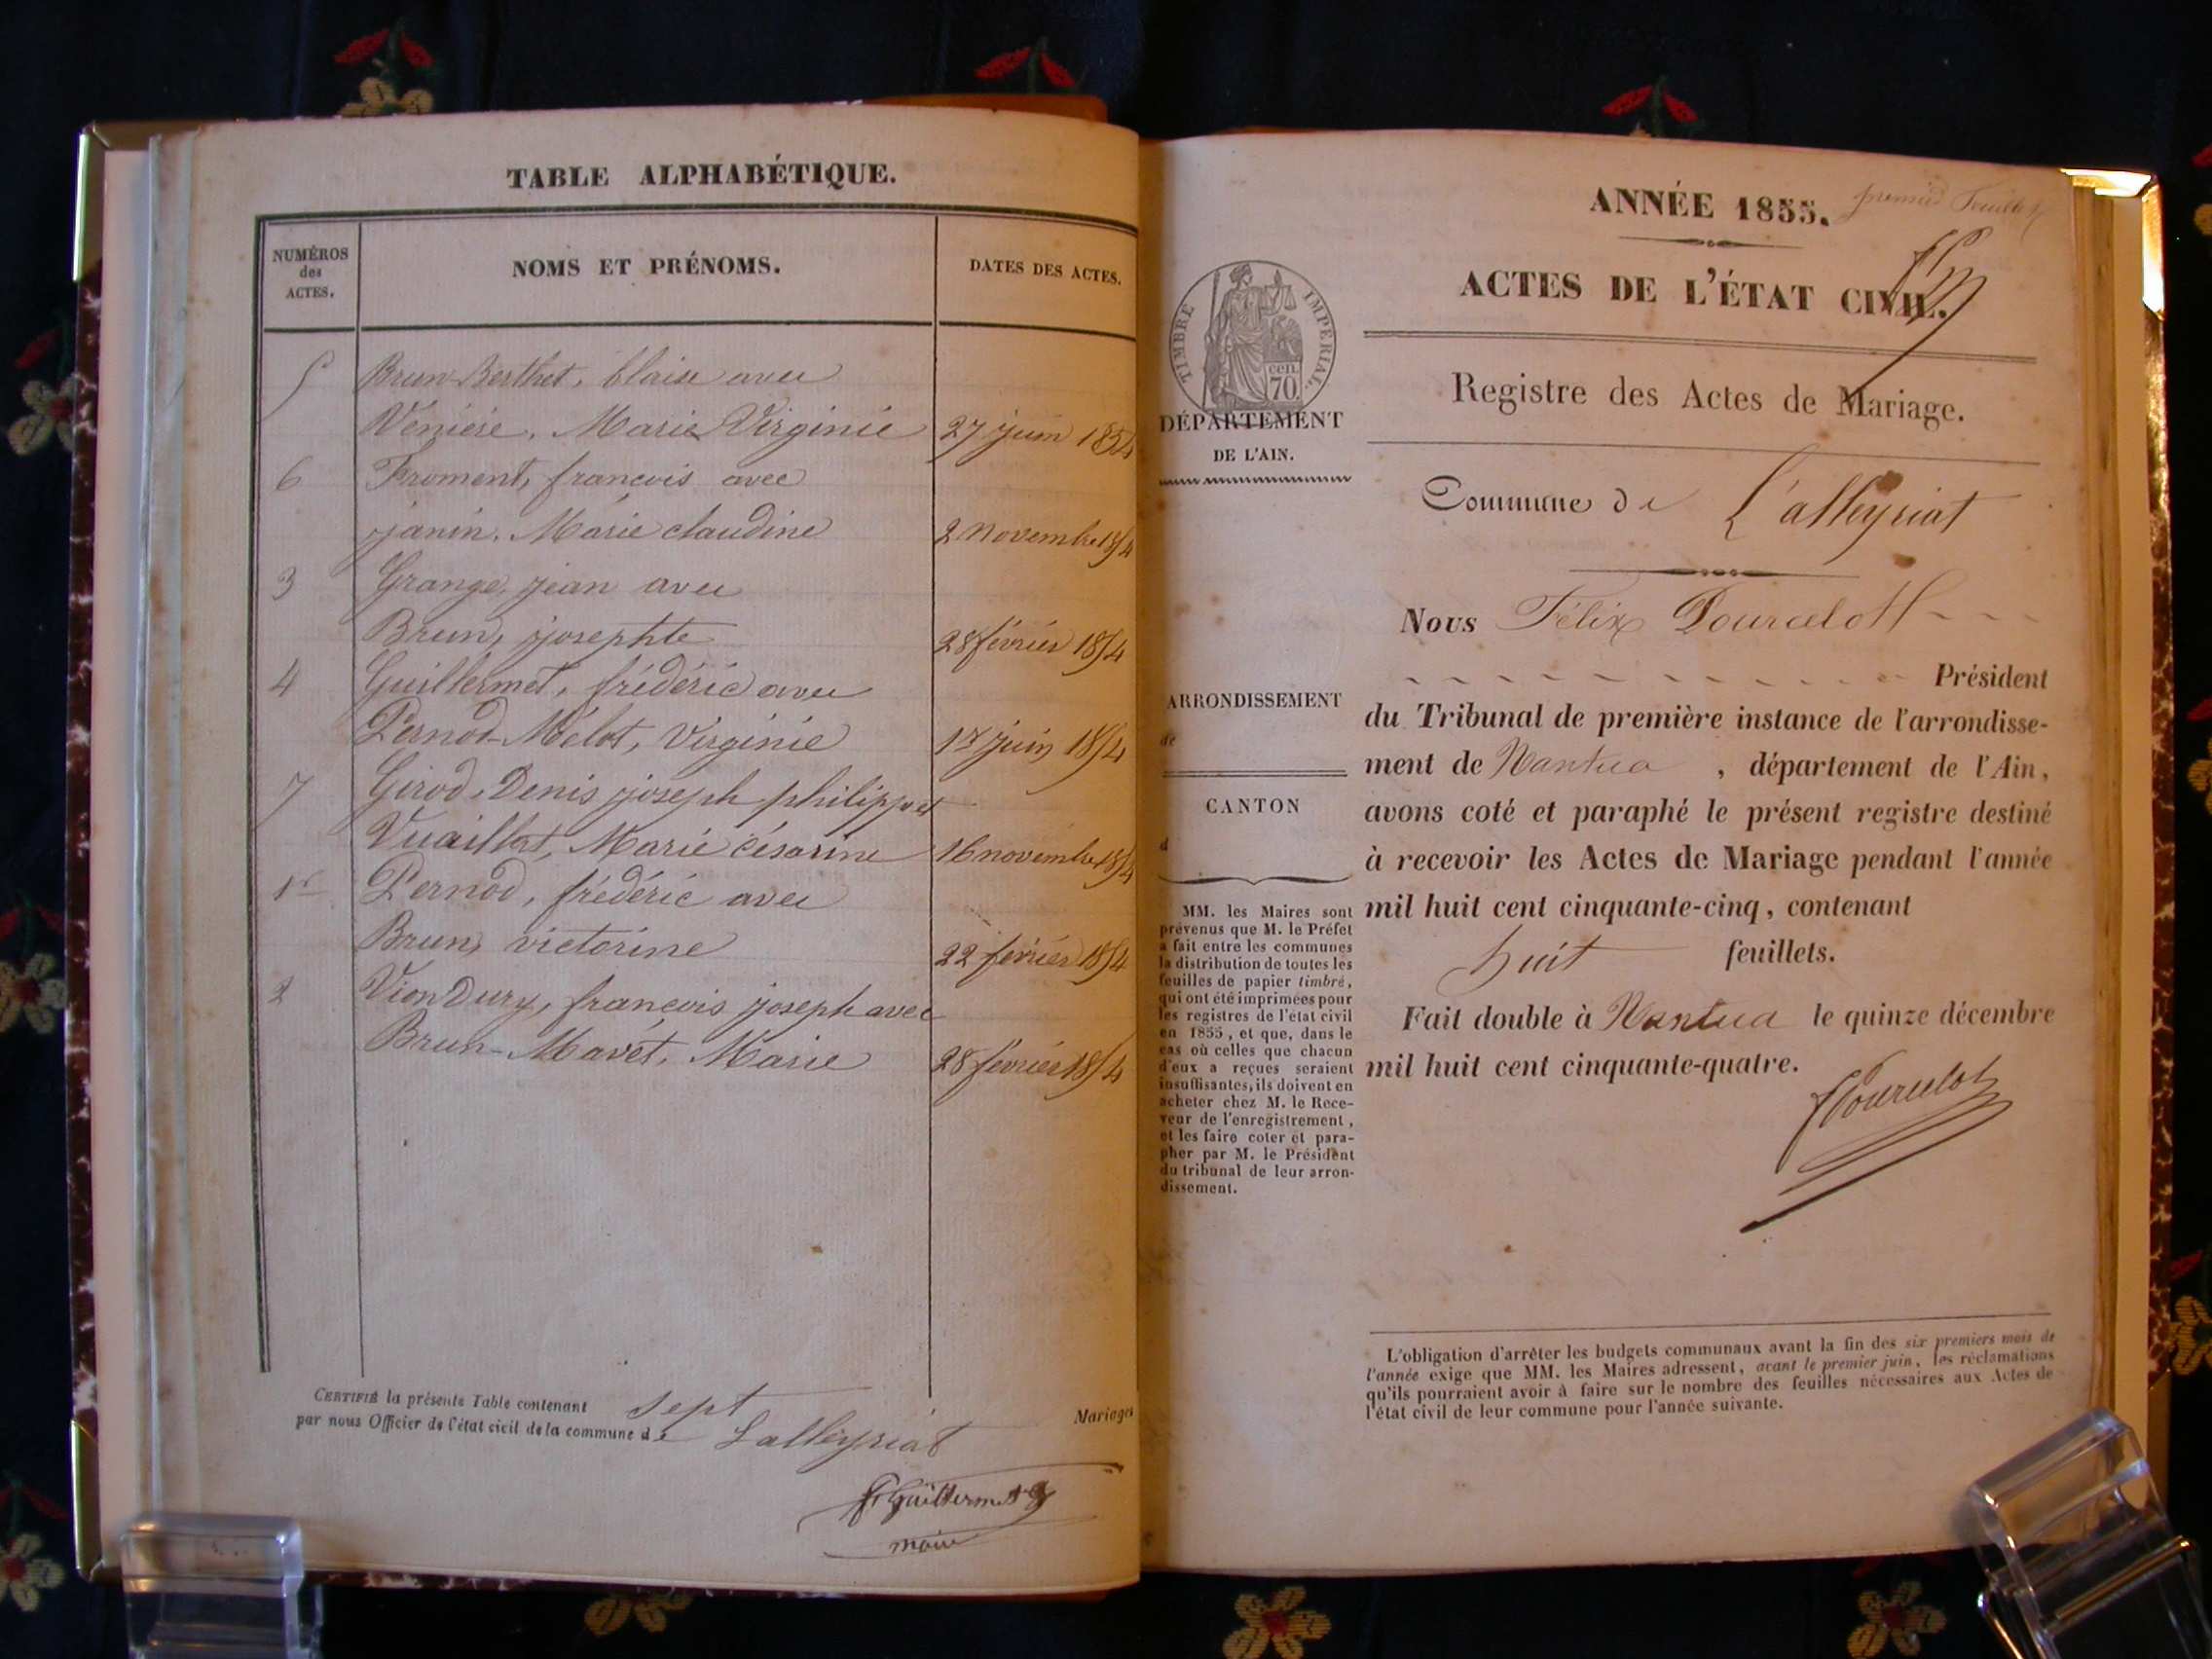 TABLE ALPHABÉTIQUE.
NUMÉROS des ACTES.
NOMS ET PRÉNOMS.
DATES DES ACTES.
5 Brun Berthet, blaise avec
Vénière, Marie Virginie 27 juin 1854
6 Froment, françois avec
janin, Marie claudine 2 novembre 1854
3 Grange, jean avec
Brun, josephte 28 février 1854
4 Guillermet, frédéric avec
Pernod-Mélot, Virginie 17 juin 1854
7 Girod, Denis joseph philippe et
Vuaillat, Marie césarine 16 novembre 1854
1er Pernod, frédéric avec
Brun, victorine 22 février 1854
2 Vion Dury, françois joseph avec
Brun-Mavet, Marie 28 février 1854
CERTIFIÉ la présente Table contenant sept Mariages
par nous Officier de l'état civil de la commune de Lalleyriat
f. Guillermet
maire
ANNÉE 1855.
premier feuillet
ACTES DE L'ÉTAT CIVIL.
TIMBRE IMPÉRIAL.
cen. 70.
Registre des Actes de Mariage.
DÉPARTEMENT
DE L'AIN.
Commune de L'alleyriat
Nous Félix Pourcelot
Président
ARRONDISSEMENT
de
CANTON
d
du Tribunal de première instance de l'arrondisse-
ment de Nantua, département de l'Ain,
avons coté et paraphé le présent registre destiné
à recevoir les Actes de Mariage pendant l'année
mil huit cent cinquante-cinq, contenant
huit feuillets.
Fait double à Nantua le quinze décembre
mil huit cent cinquante-quatre.
fPourcelot
MM. les Maires sont
prévenus que M. le Préfet
a fait entre les communes
la distribution de toutes les
feuilles de papier timbré,
qui ont été imprimées pour
les registres de l'état civil
en 1855, et que, dans le
cas où celles que chacun
d'eux a reçues seraient
insuffisantes, ils doivent en
acheter chez M. le Rece-
veur de l'enregistrement,
et les faire coter et para-
pher par M. le Président
du tribunal de leur arron-
dissement.
L'obligation d'arrêter les budgets communaux avant la fin des six premiers mois de
l'année exige que MM. les Maires adressent, avant le premier juin, les réclamations
qu'ils pourraient avoir à faire sur le nombre des feuilles nécessaires aux Actes de
l'état civil de leur commune pour l'année suivante.